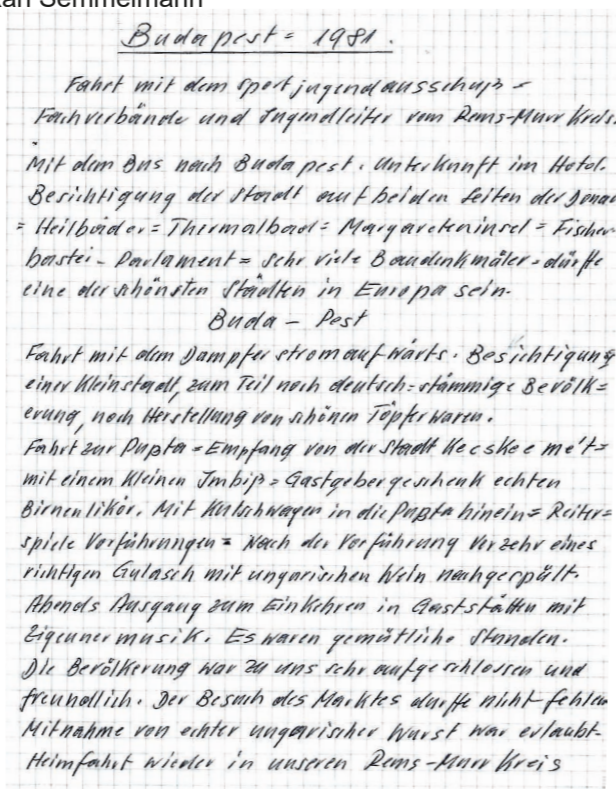 Semmelmann
Budapest = 1981.
Fahrt mit dem Sportjugendausschuß =
Fachverbände und Jugendleiter vom Rems-Murr Kreis.
Mit dem Bus nach Budapest. Unterkunft im Hotel.
Besichtigung der Stadt auf beiden Seiten der Donau
= Heilbäder = Thermalbad = Margareteninsel = Fischer
bastei - Parlament = sehr viele Baudenkmäler = dürfte
eine der schönsten Städten in Europa sein.
Buda - Pest
Fahrt mit dem Dampfer stromaufwärts. Besichtigung
einer Kleinstadt, zum Teil noch deutsch=stämmige Bevölk=
erung, noch Herstellung von schönen Töpferwaren.
Fahrt zur Pußta = Empfang von der Stadt Kecskeemé't=
mit einem kleinen Imbiß = Gastgebergeschenk echten
Birnenlikör. Mit Kutschwagen in die Pußta hinein = Reiter=
spiele Vorführungen = Nach der Vorführung Verzehr eines
richtigen Gulasch mit ungarischen Wein nachgespült.
Abends Ausgang zum Einkehren in Gaststätten mit
Zigeunermusik. Es waren gemütliche Stunden.
Die Bevölkerung war zu uns sehr aufgeschlossen und
freundlich. Der Besuch des Marktes durfte nicht fehlen
Mitnahme von echter ungarischer Wurst war erlaubt.
Heimfahrt wieder in unseren Rems-Murr Kreis